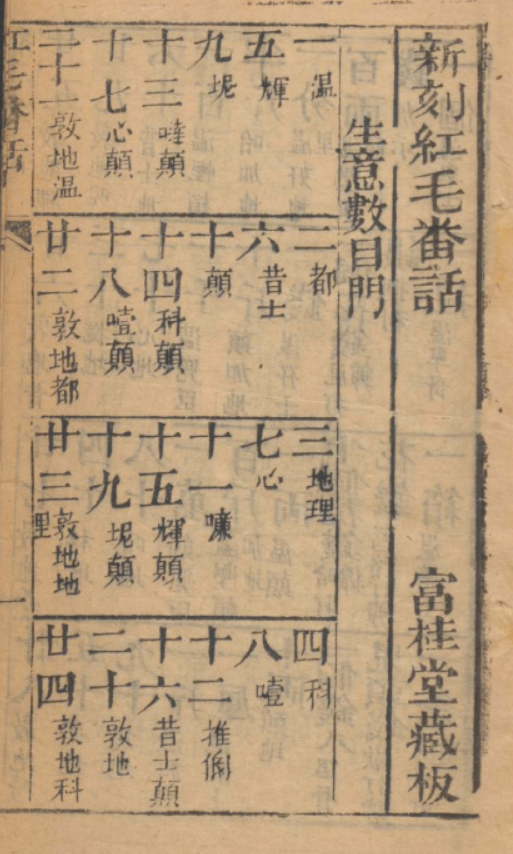 新刻紅毛番話
富桂堂藏板
生意數目門
一温
二都
三地理
四科
五輝
六昔士
七心
八噎
九坭
十顛
十一嗛
十二推
十三㖿顛
十四科顛
十五輝顛
十六昔士顛
十七心顛
十八噎顛
十九坭顛
二十敦地
二十一敦地温
廿二敦地都
廿三敦地地理
廿四敦地科
紅毛番話
一